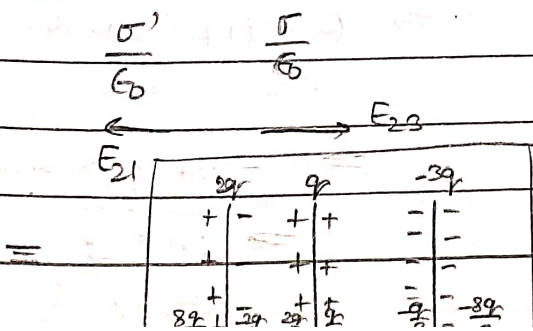 σ' σ
ϵ0 ϵ0
E23
E21
2q q -3q
+ - + + - -
= - -
+ + + -
+ - + + - -
8q -2q 2q q -q -8q